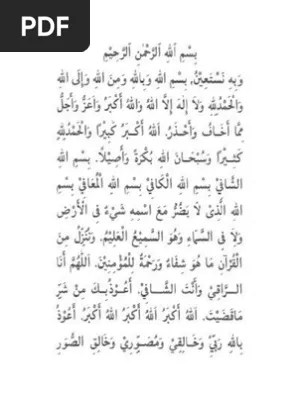 PDF
بِسْمِ اللهِ الرَّحْمٰنِ الرَّحِيْمِ
وَبِهِ نَسْتَعِيْنُ. بِسْمِ اللهِ وَبِاللهِ وَمِنَ اللهِ وَإِلَى اللهِ
وَالْحَمْدُلِلّٰهِ وَلاَ إِلٰهَ إِلاَّ اللهُ وَاللهُ أَكْبَرُ وَأَعَزُّ وَأَجَلُّ
مِمَّا أَخَافُ وَأَحْذَرُ. اَللهُ أَكْبَرُ كَبِيْرًا وَالْحَمْدُلِلّٰهِ
كَثِيْرًا وَسُبْحَانَ اللهِ بُكْرَةً وَأَصِيْلًا. بِسْمِ اللهِ
الشَّافِيْ بِسْمِ اللهِ الْكَافِيْ بِسْمِ اللهِ الْمُعَافِيْ بِسْمِ
اللهِ الَّذِىْ لَا يَضُرُّ مَعَ اسْمِهِ شَيْءٌ فِى الْأَرْضِ
وَلَا فِى السَّمَاءِ وَهُوَ السَّمِيْعُ الْعَلِيْمُ. وَنُنَزِّلُ مِنَ
الْقُرْآنِ مَا هُوَ شِفَاءٌ وَرَحْمَةٌ لِلْمُؤْمِنِيْنَ. اَللّٰهُمَّ أَنَا
الـرَّاقِيْ وَأَنْتَ الشَّـافِيْ. أَعُـوْذُبِـكَ مِنْ شَرِّ
مَاقَضَيْتَ. اَللهُ أَكْبَرُ اَللهُ أَكْبَرُ اَللهُ أَكْبَرُ. أَعُوْذُ
بِاللهِ رَبِّيْ وَخَـالِقِيْ وَمُصَـوِّرِيْ وَخَالِقِ الصُّوَرِ